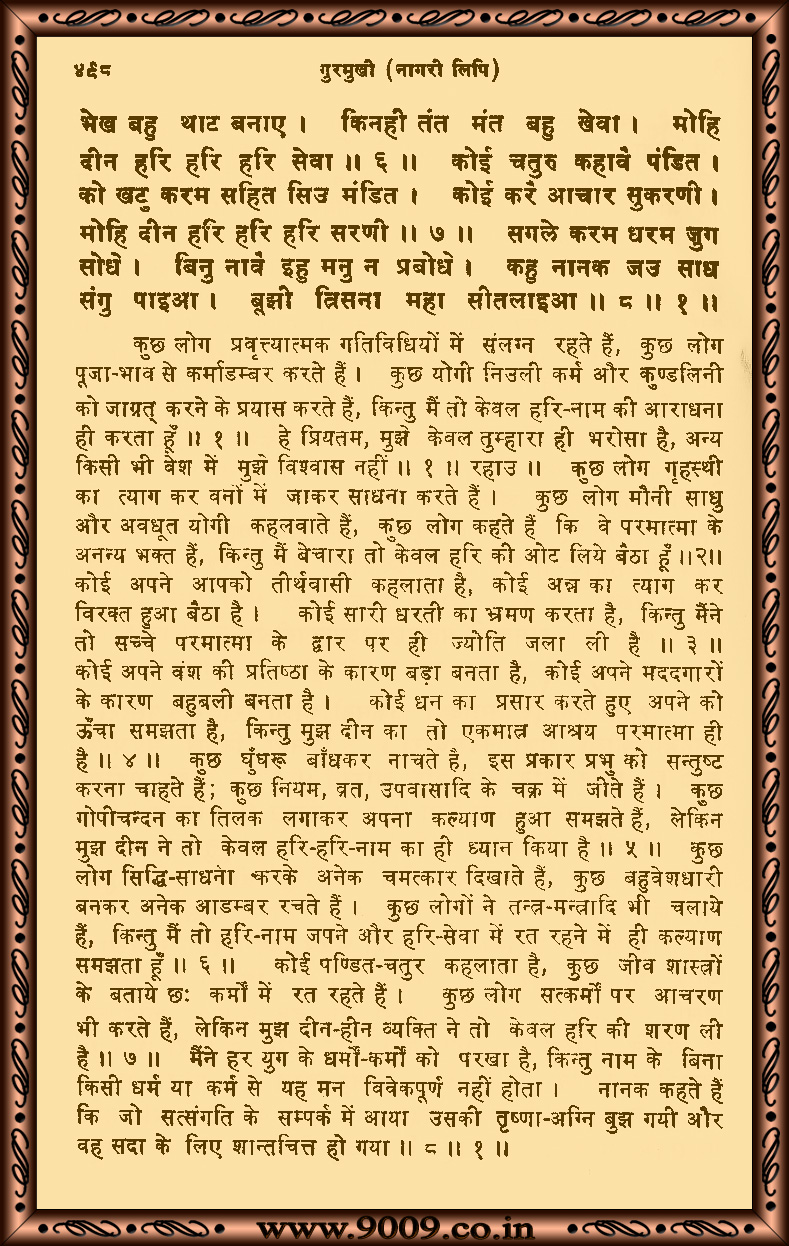 ४९८ गुरमुखी (नागरी लिपि)
भेख बहु थाट बनाए । किनही तंत मंत बहु खेवा । मोहि
दीन हरि हरि हरि सेवा ॥ ६ ॥ कोई चतुरु कहावै पंडित ।
को खटु करम सहित सिउ मंडित । कोई करै आचार सुकरणी ।
मोहि दीन हरि हरि हरि सरणी ॥ ७ ॥ सगले करम धरम जुग
सोधे । बिनु नावै इहु मनु न प्रबोधे । कहु नानक जउ साध
संगु पाइआ । बूझी त्रिसना महा सीतलाइआ ॥ ८ ॥ १ ॥
कुछ लोग प्रवृत्त्यात्मक गतिविधियों में संलग्न रहते हैं, कुछ लोग
पूजा-भाव से कर्माडम्बर करते हैं । कुछ योगी निउली कर्म और कुण्डलिनी
को जाग्रत् करने के प्रयास करते हैं, किन्तु मैं तो केवल हरि-नाम की आराधना
ही करता हूँ ॥ १ ॥ हे प्रियतम, मुझे केवल तुम्हारा ही भरोसा है, अन्य
किसी भी वेश में मुझे विश्वास नहीं ॥ १ ॥ रहाउ ॥ कुछ लोग गृहस्थी
का त्याग कर वनों में जाकर साधना करते हैं । कुछ लोग मौनी साधु
और अवधूत योगी कहलवाते हैं, कुछ लोग कहते हैं कि वे परमात्मा के
अनन्य भक्त हैं, किन्तु मैं बेचारा तो केवल हरि की ओट लिये बैठा हूँ ॥२॥
कोई अपने आपको तीर्थवासी कहलाता है, कोई अन्न का त्याग कर
विरक्त हुआ बैठा है । कोई सारी धरती का भ्रमण करता है, किन्तु मैंने
तो सच्चे परमात्मा के द्वार पर ही ज्योति जला ली है ॥ ३ ॥
कोई अपने वंश की प्रतिष्ठा के कारण बड़ा बनता है, कोई अपने मददगारों
के कारण बहुबली बनता है । कोई धन का प्रसार करते हुए अपने को
ऊँचा समझता है, किन्तु मुझ दीन का तो एकमात्र आश्रय परमात्मा ही
है ॥ ४ ॥ कुछ घुँघरू बाँधकर नाचते है, इस प्रकार प्रभु को सन्तुष्ट
करना चाहते हैं; कुछ नियम, व्रत, उपवासादि के चक्र में जीते हैं । कुछ
गोपीचन्दन का तिलक लगाकर अपना कल्याण हुआ समझते हैं, लेकिन
मुझ दीन ने तो केवल हरि-हरि-नाम का ही ध्यान किया है ॥ ५ ॥ कुछ
लोग सिद्धि-साधना करके अनेक चमत्कार दिखाते हैं, कुछ बहुवेशधारी
बनकर अनेक आडम्बर रचते हैं । कुछ लोगों ने तन्त्र-मन्त्रादि भी चलाये
हैं, किन्तु मैं तो हरि-नाम जपने और हरि-सेवा में रत रहने में ही कल्याण
समझता हूँ ॥ ६ ॥ कोई पण्डित-चतुर कहलाता है, कुछ जीव शास्त्रों
के बताये छः कर्मों में रत रहते हैं । कुछ लोग सत्कर्मों पर आचरण
भी करते हैं, लेकिन मुझ दीन-हीन व्यक्ति ने तो केवल हरि की शरण ली
है ॥ ७ ॥ मैंने हर युग के धर्मों-कर्मों को परखा है, किन्तु नाम के बिना
किसी धर्म या कर्म से यह मन विवेकपूर्ण नहीं होता । नानक कहते हैं
कि जो सत्संगति के सम्पर्क में आया उसकी तृष्णा-अग्नि बुझ गयी और
वह सदा के लिए शान्तचित्त हो गया ॥ ८ ॥ १ ॥
www.9009.co.in